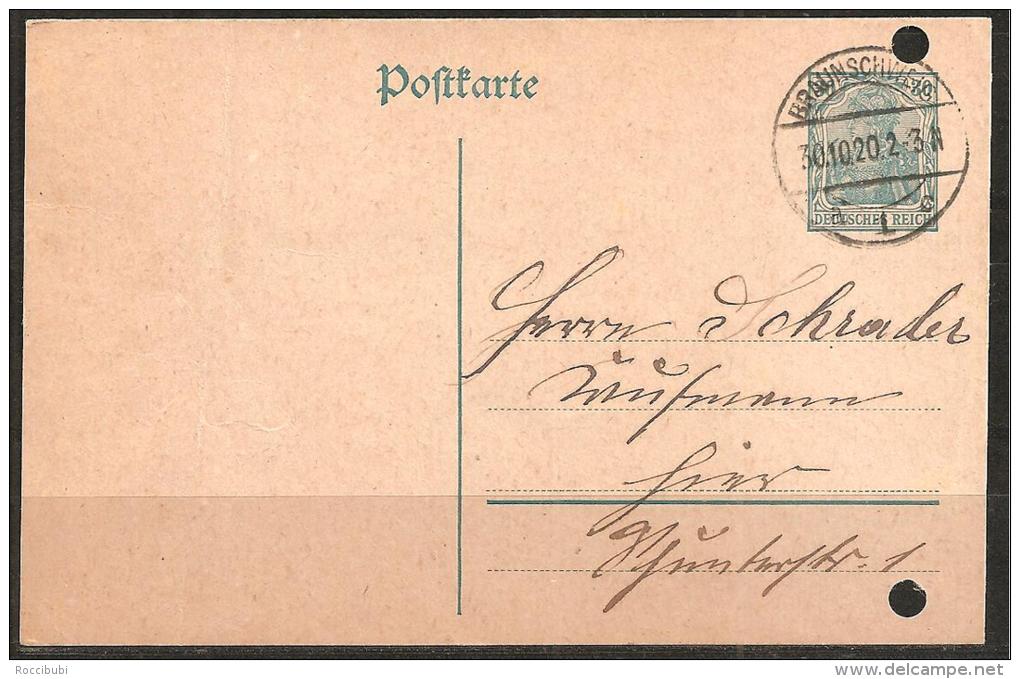 Postkarte
BRAUNSCHWEIG
30.10.20.2-3 N
DEUTSCHES REICH
* 1 c
Herrn Schrader
Kaufmann
hier
Schunterstr. 1
Roccibubi
www.delcampe.net